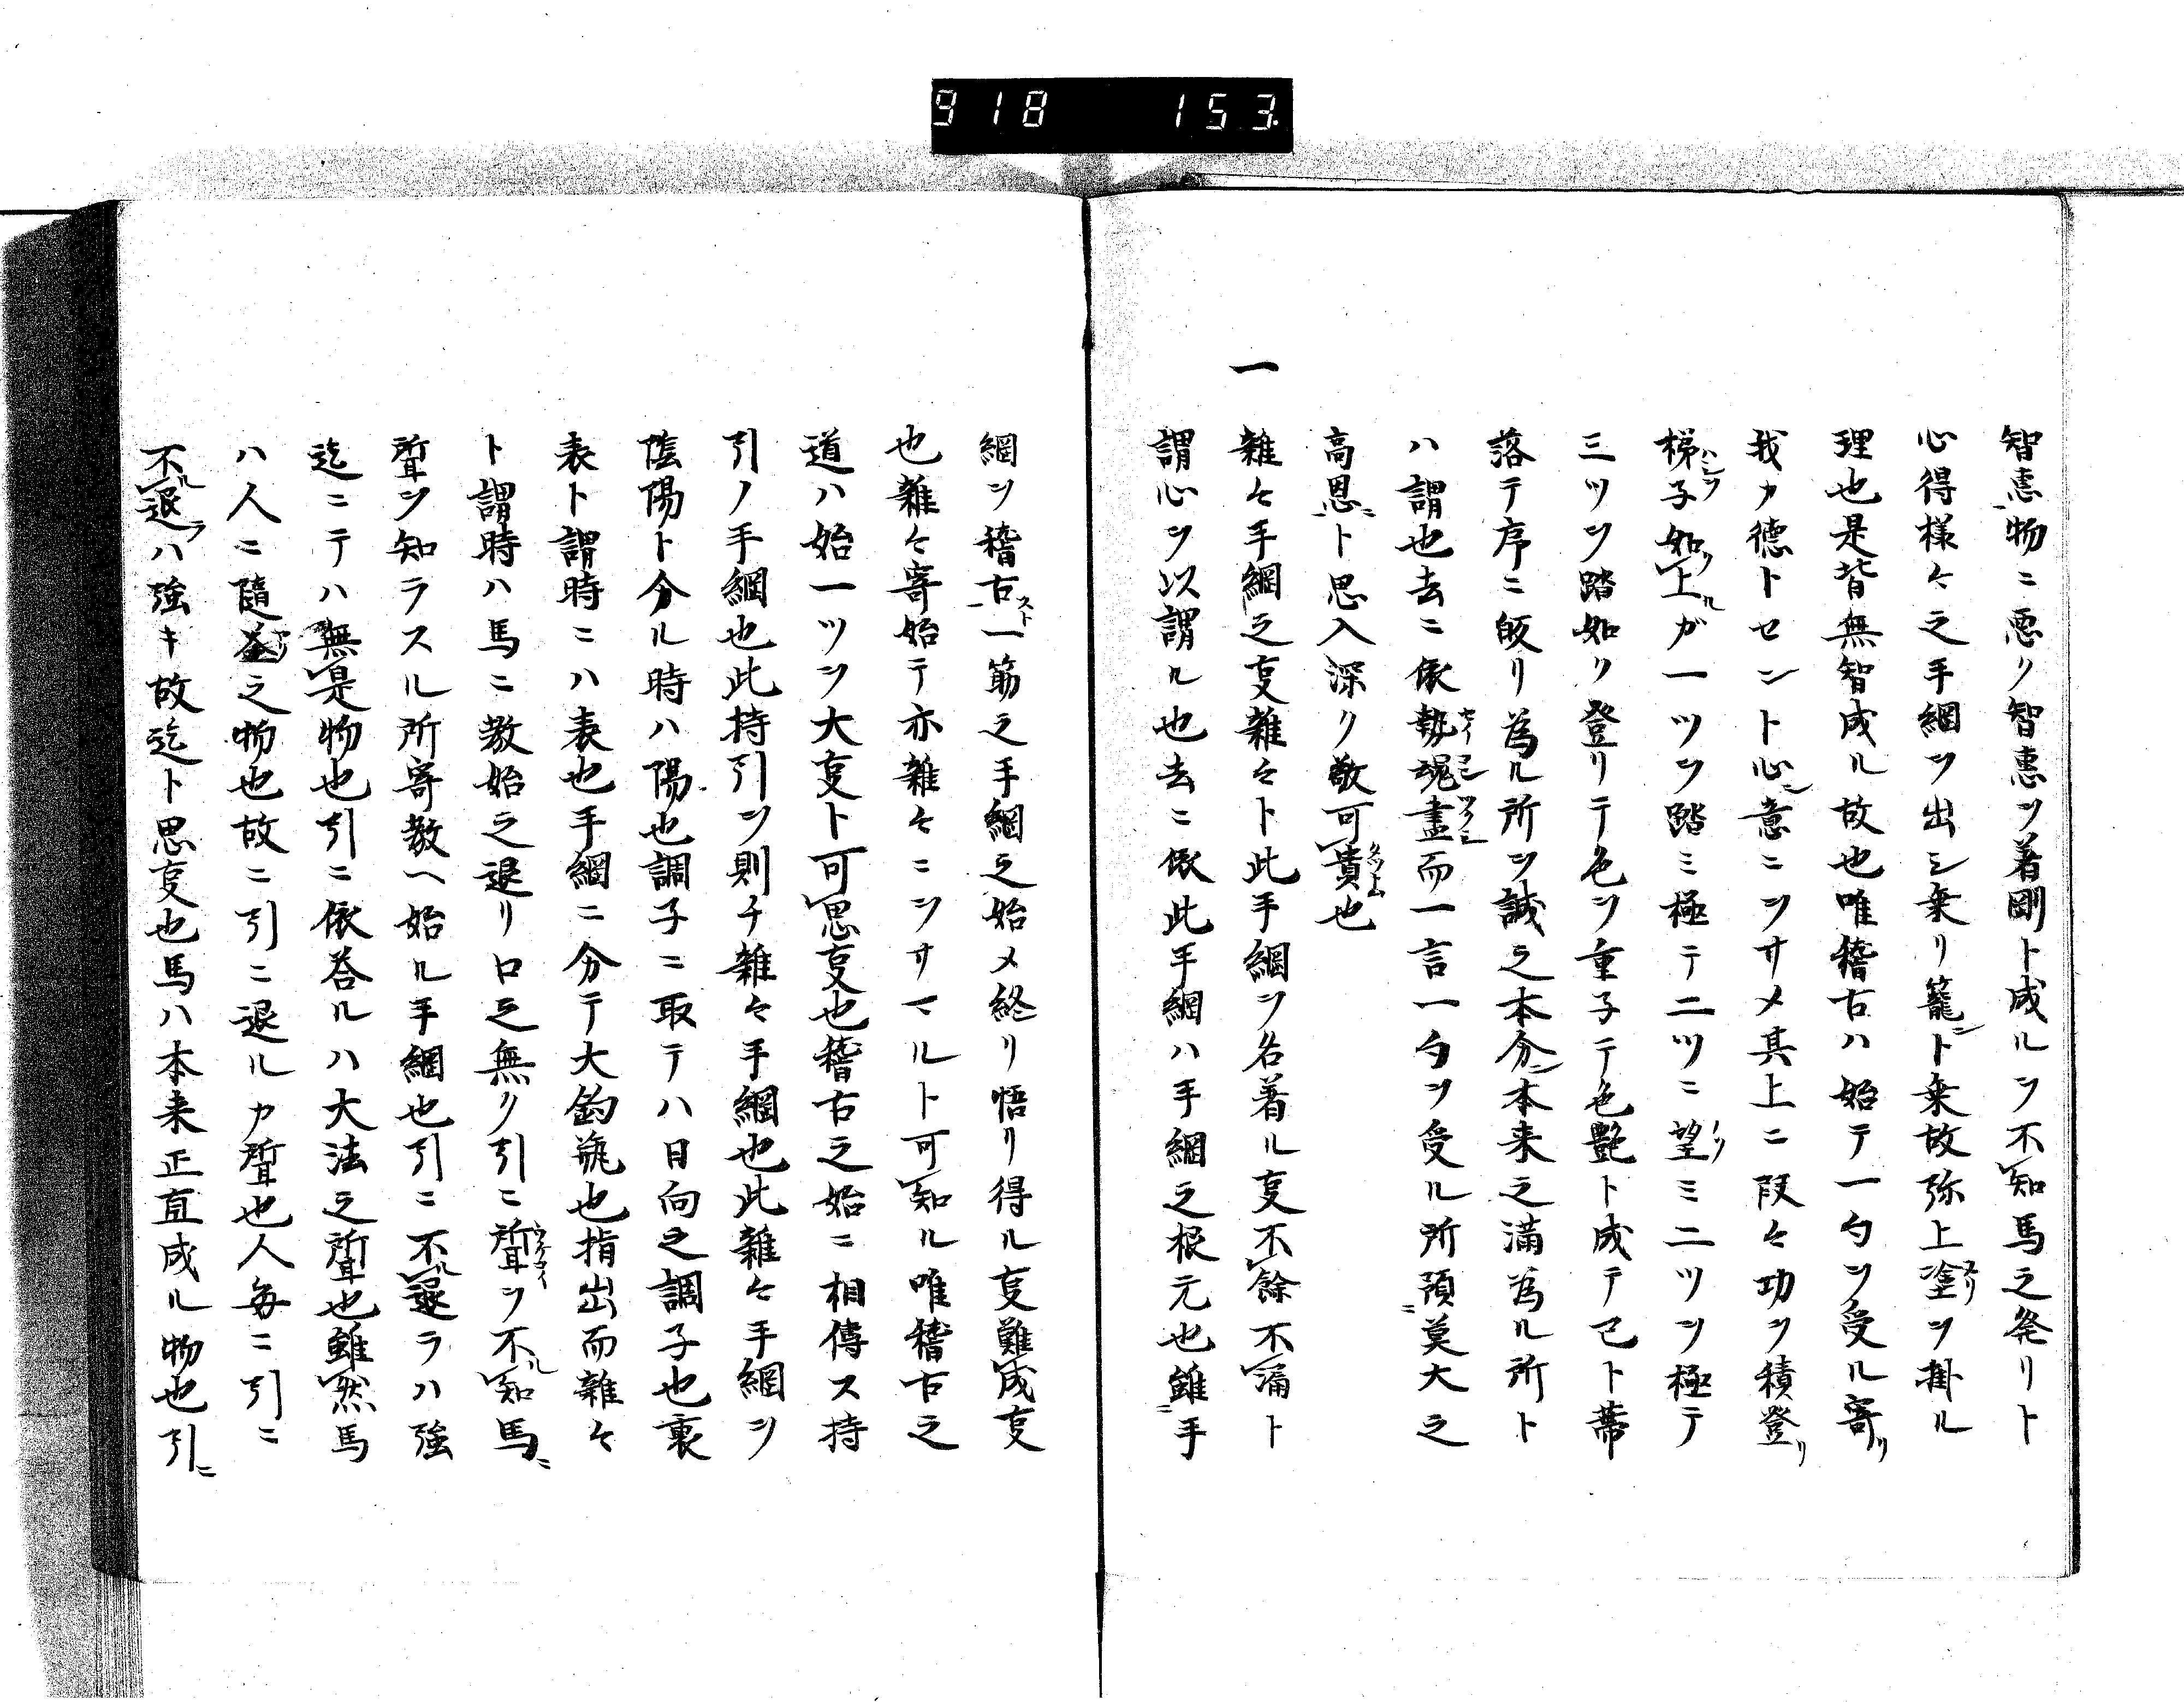 918 153.
智恵物ニ悪ク智恵ヲ着剛ト成ルヲ不知馬之発リト
心得様々之手綱ヲ出シ乗リ籠ト乗故弥上塗ヲ掛ル
理也是皆無智成ル故也唯稽古ハ始テ一勺ヲ受ル寄リ
我カ徳トセント心意ニヲサメ其上ニ段々功ヲ積登リ
梯子如上ルガ一ツヲ踏ミ極テ二ツニ望ミ二ツヲ極テ
三ツヲ踏如ク登リテ色ヲ重子テ色艶ト成テ已ト蔕
落テ序ニ皈リ為ル所ヲ誠之本分本来之満為ル所ト
ハ謂也去ニ依勢魂盡而一言一勺ヲ受ル所預莫大之
高恩ト思入深ク敬可貴也
一 雑々手綱之叓雑々ト此手綱ヲ名著ル叓不餘不漏ト
謂心ヲ以謂ル也去ニ依此手綱ハ手綱之根元也雖手
綱ヲ稽古スト一筋之手綱之始メ終リ悟リ得ル叓難成叓
也雑々寄始テ亦雑々ニヲサマルト可知ル唯稽古之
道ハ始一ツヲ大叓ト可思叓也稽古之始ニ相傳ス持
引ノ手綱也此持引ヲ則チ雑々手綱也此雑々手綱ヲ
陰陽ト分ル時ハ陽也調子ニ取テハ日向之調子也裏
表ト謂時ニハ表也手綱ニ分テ大釣瓶也指出而雑々
ト謂時ハ馬ニ教始之退リ口之無ク引ニ聟ヲ不知馬ニ
聟ヲ知ラスル所寄教ヘ始ル手綱也引ニ不退ラハ強
迄ニテハ無是物也引ニ依答ルハ大法之聟也雖然馬
ハ人ニ隨之物也故ニ引ニ退ルカ聟也人毎ニ引ニ
不退ラハ強キ故迄ト思叓也馬ハ本来正直成ル物也引ニ